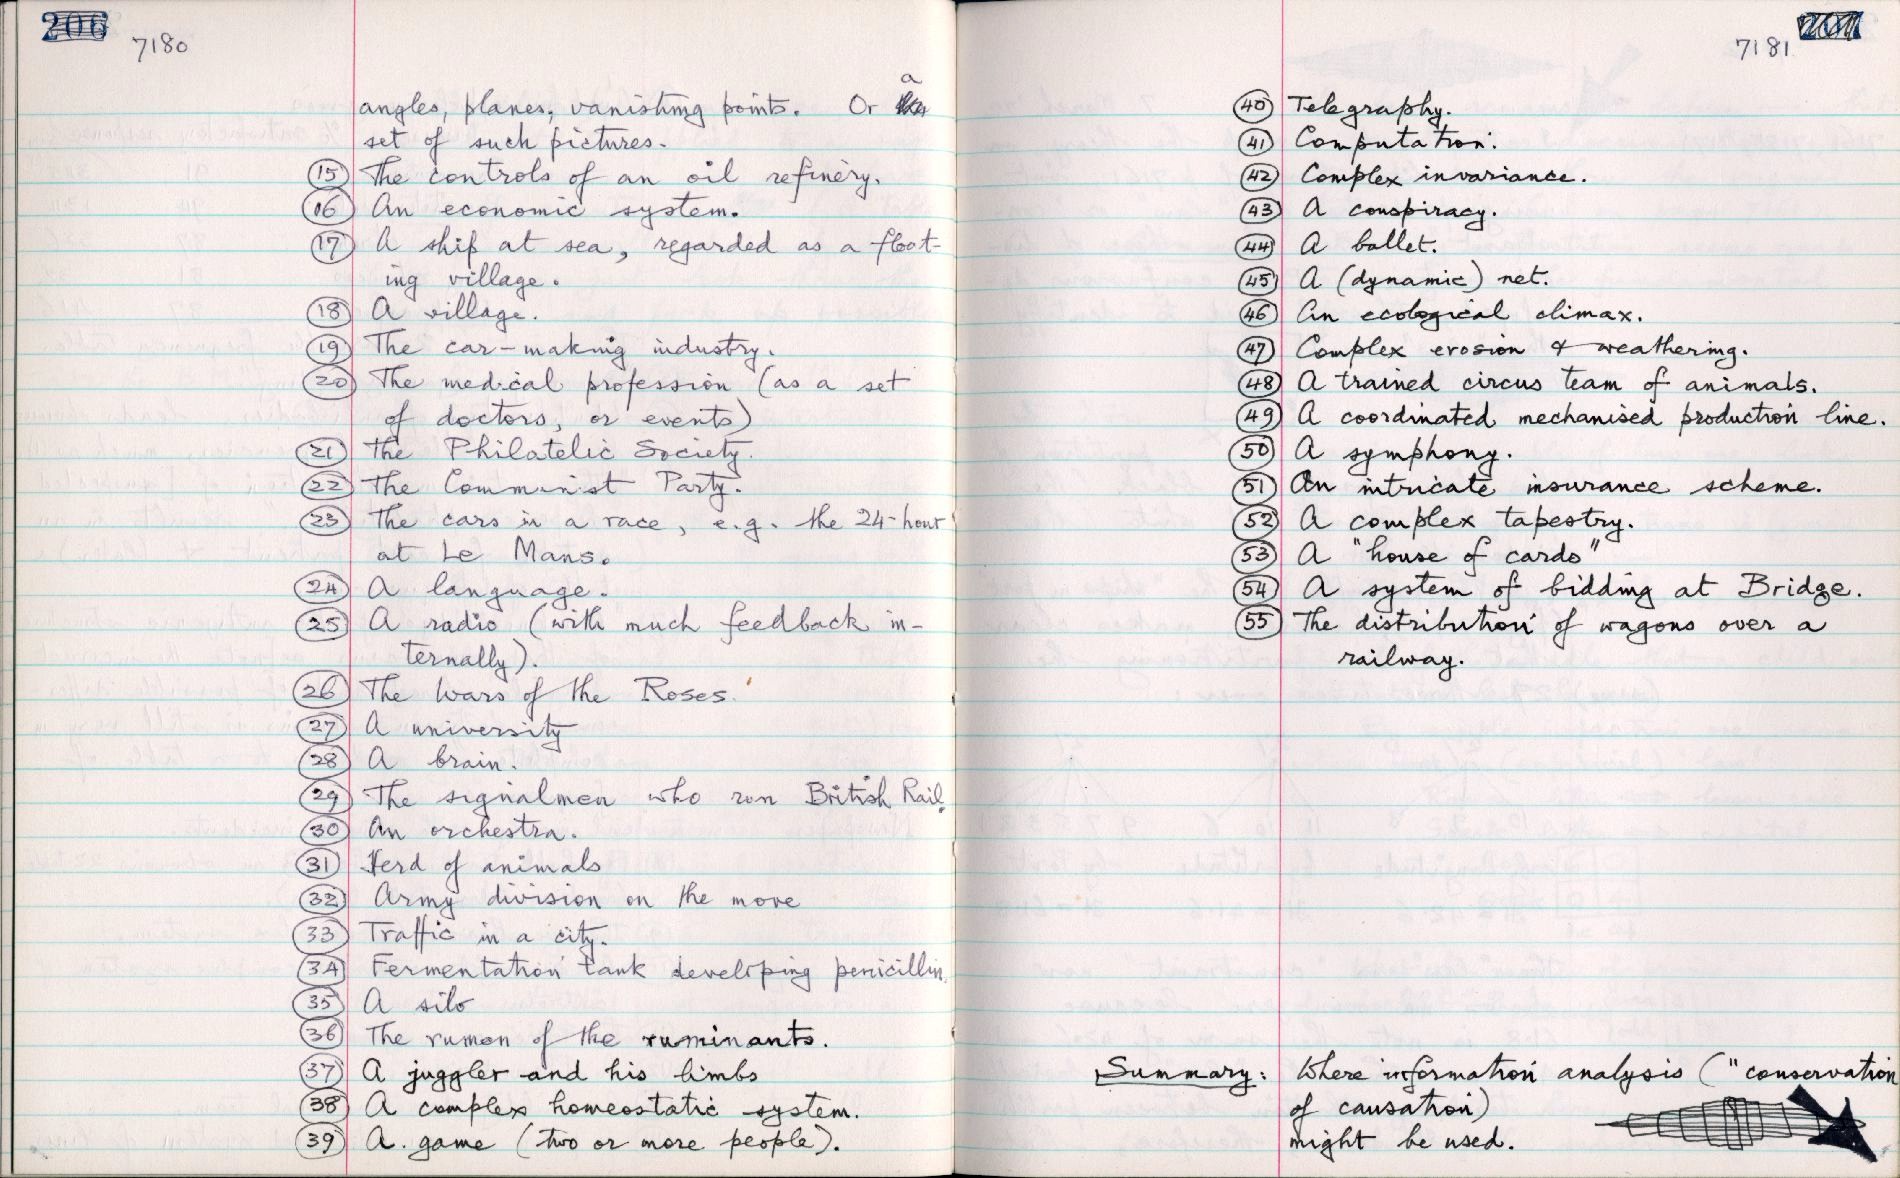 206
7180
a
angles, planes, vanishing points. Or
set of such pictures.
15 The controls of an oil refinery.
16 An economic system.
17 A ship at sea, regarded as a float-
ing village.
18 A village.
19 The car-making industry.
20 The medical profession (as a set
of doctors, or events)
21 The Philatelic Society.
22 The Communist Party.
23 The cars in a race, e.g. the 24-hour
at Le Mans.
24 A language.
25 A radio (with much feedback in-
ternally).
26 The Wars of the Roses.
27 A university
28 A brain.
29 The signalmen who run British Rail.
30 An orchestra.
31 Herd of animals
32 Army division on the move
33 Traffic in a city.
34 Fermentation tank developing penicillin.
35 A silo
36 The rumen of the ruminants.
37 A juggler and his limbs
38 A complex homeostatic system.
39 A game (two or more people).
207
7181
40 Telegraphy.
41 Computation.
42 Complex invariance.
43 A conspiracy.
44 A ballet.
45 A (dynamic) net.
46 An ecological climax.
47 Complex erosion & weathering.
48 A trained circus team of animals.
49 A coordinated mechanised production line.
50 A symphony.
51 An intricate insurance scheme.
52 A complex tapestry.
53 A "house of cards"
54 A system of bidding at Bridge.
55 The distribution of wagons over a
railway.
Summary: Where information analysis ("conservation
of causation)
might be used.